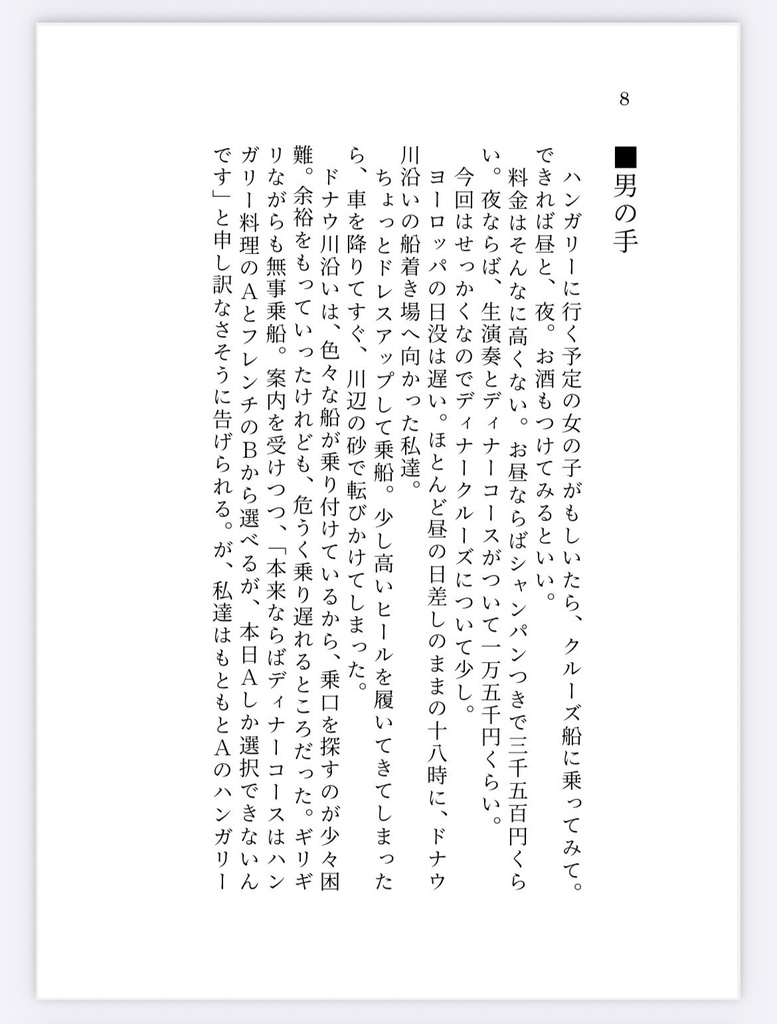 8
■男の手
ハンガリーに行く予定の女の子がもしいたら、クルーズ船に乗ってみて。
できれば昼と、夜。お酒もつけてみるといい。
料金はそんなに高くない。お昼ならばシャンパンつきで三千五百円くら
い。夜ならば、生演奏とディナーコースがついて一万五千円くらい。
今回はせっかくなのでディナークルーズについて少し。
ヨーロッパの日没は遅い。ほとんど昼の日差しのままの十八時に、ドナウ
川沿いの船着き場へ向かった私達。
ちょっとドレスアップして乗船。少し高いヒールを履いてきてしまった
ら、車を降りてすぐ、川辺の砂で転びかけてしまった。
ドナウ川沿いは、色々な船が乗り付けているから、乗口を探すのが少々困
難。余裕をもっていったけれども、危うく乗り遅れるところだった。ギリギ
リながらも無事乗船。案内を受けつつ、「本来ならばディナーコースはハン
ガリー料理のAとフレンチのBから選べるが、本日Aしか選択できないん
です」と申し訳なさそうに告げられる。が、私達はもともとAのハンガリー